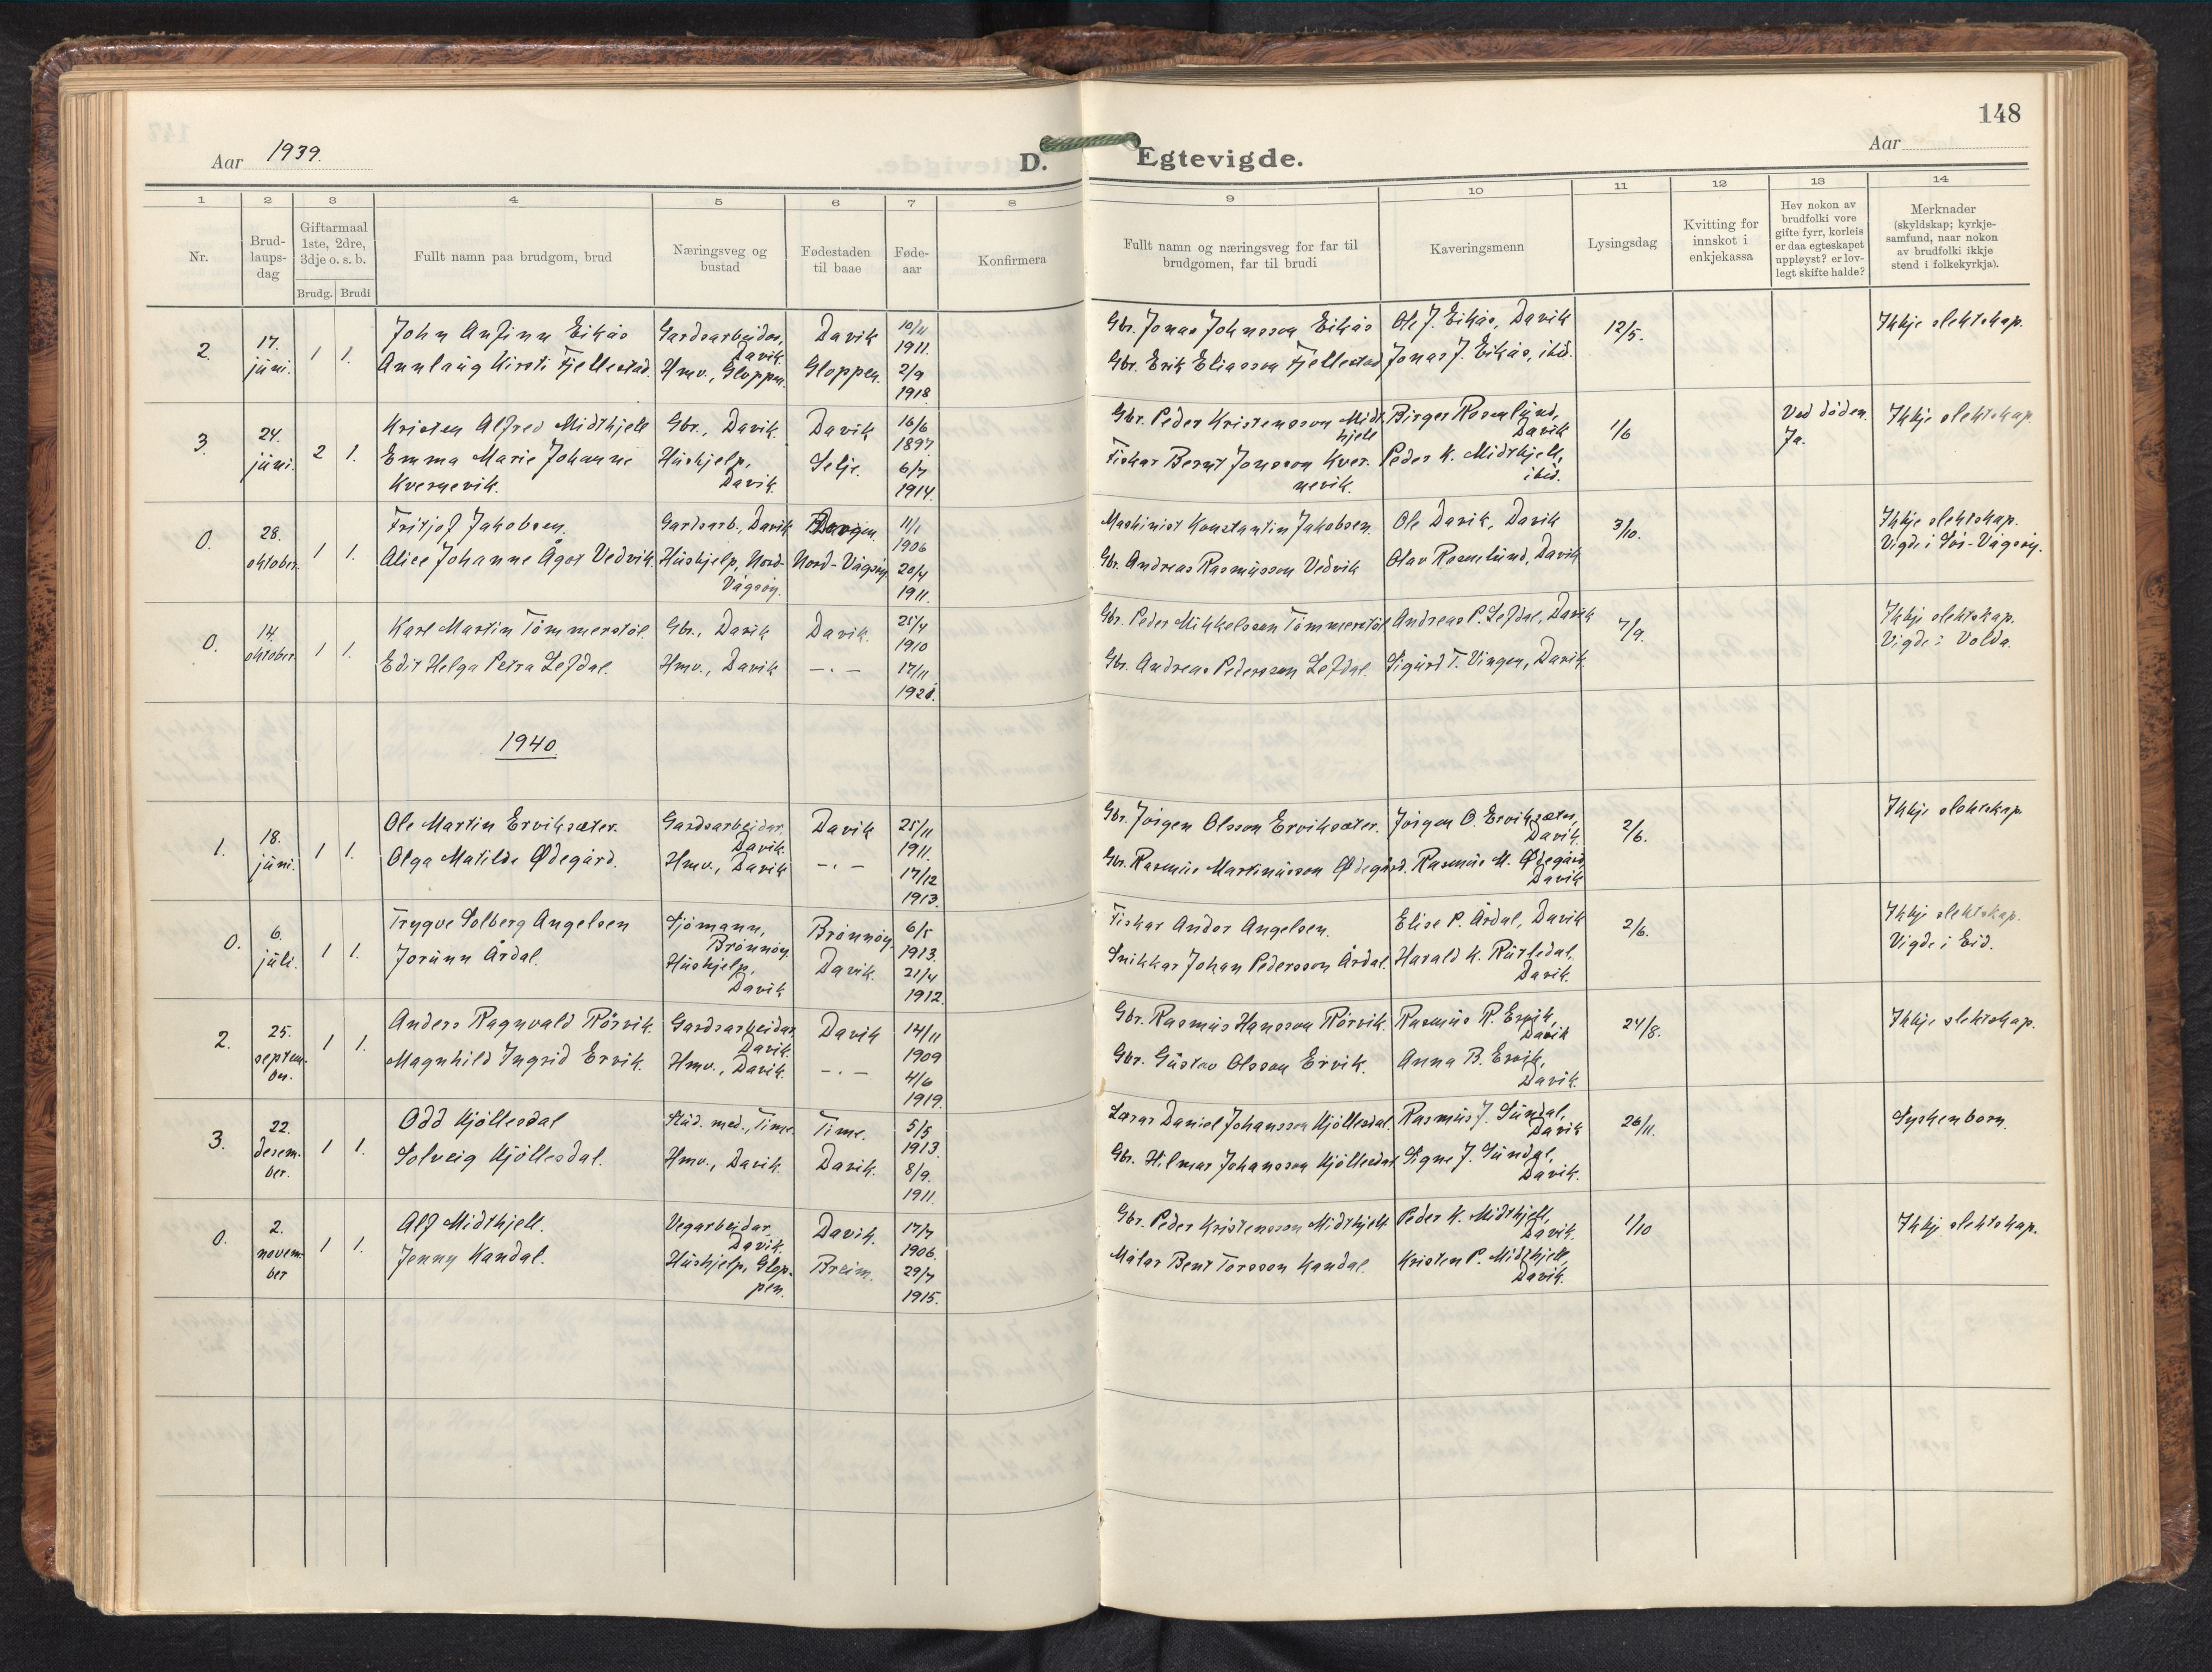 148
Aar 1939.
D. Egtevigde.
Aar
1 2 3 4 5 6 7 8 9 10 11 12 13 14
Nr.
Brud-
laups-
dag
Giftarmaal
1ste, 2dre,
3dje o. s. b.
Brudg. Brudi
Fullt namn paa brudgom, brud
Næringsveg og
bustad
Fødestaden
til baae
Føde-
aar
Konfirmera
Fullt namn og næringsveg for far til
brudgomen, far til brudi
Kaveringsmenn
Lysingsdag
Kvitting for
innskot i
enkjekassa
Hev nokon av
brudfolki vore
gifte fyrr, korleis
er daa egteskapet
uppløyst? er lov-
legt skifte halde?
Merknader
(skyldskap; kyrkje-
samfund, naar nokon
av brudfolki ikkje
stend i folkekyrkja).
2. 17. juni. 1 1.
John Anfinn Eikås Gardsarbeidar, Davik. Davik 10/11 1911.
Annlaug Kirsti Fjellestad. Hmv., Gloppen. Gloppen. 2/9 1918.
Gbr. Jonas Johnsson Eikås Ole J. Eikås, Davik 12/5. Ikkje slektskap.
Gbr. Erik Eliasson Fjellestad Jonas J. Eikås, ibid.
3. 24. juni. 2 1.
Kristen Alfred Midthjell Gbr., Davik. Davik 16/6 1897.
Emma Marie Johanne Kvernevik. Hushjelp, Davik. Selje. 6/7 1914.
Gbr. Peder Kristensson Midthjell Birger Rosenlund, Davik 1/6 Ved døden. Ja. Ikkje slektskap.
Fiskar Bernt Jonsson Kvernevik. Peder K. Midthjell, ibid.
0. 28. oktober. 1 1.
Fritjof Jakobsen. Gardsarb., Davik 11/1 1906
Alice Johanne Ågot Vedvik. Hushjelp, Nord-Vågsøy. Nord-Vågsøy 20/4 1911.
Maskinist Konstantin Jakobsen. Ole Davik, Davik 3/10. Ikkje slektskap.
Vigde i Sør-Vågsøy.
Gbr. Andreas Rasmusson Vedvik Olav Rosenlund, Davik
0. 14. oktober. 1 1.
Karl Martin Tømmerstøl Gbr., Davik Davik. 25/4 1910
Edit Helga Petra Lefdal. Hmv., Davik —.— 17/11
Gbr. Peder Mikkelsson Tømmerstøl Andreas P. Lefdal, Davik 7/9. Ikkje slektskap.
Vigde i Volda.
Gbr. Andreas Pedersson Lefdal. Sigurd T. Vingen, Davik.
1940
1. 18. juni. 1 1.
Ole Martin Erviksæter. Gardsarbeidar, Davik. Davik 25/11 1911.
Olga Matilde Ødegård. Hmv., Davik —.— 17/12 1913.
Gbr. Jørgen Olsson Erviksæter. Jørgen O. Erviksæter, Davik. 2/6. Ikkje slektskap.
Gbr. Rasmus Martinusson Ødegård. Rasmus M. Ødegård, Davik
0. 6. juli. 1 1.
Trygve Solberg Angelsen Sjømann, Brønnøy. Brønnøy. 6/5 1913.
Jorunn Årdal. Hushjelp, Davik Davik. 21/4 1912.
Fiskar Andor Angelsen. Elise P. Årdal, Davik 2/6. Ikkje slektskap.
Vigde i Eid.
Snikkar Johan Pedersson Årdal. Harald K. Rusledal, Davik.
2. 25. september. 1 1.
Anders Ragnvald Rørvik. Gardsarbeidar Davik. Davik 14/11 1909
Magnhild Ingrid Ervik. Hmv., Davik. —.— 4/6 1919.
Gbr. Rasmus Hansson Rørvik. Rasmus R. Ervik, Davik 24/8. Ikkje slektskap.
Gbr. Gustav Olsson Ervik. Anna B. Ervik, Davik.
3. 22. desember. 1 1.
Odd Kjøllesdal Stud. med., Time. Time. 5/5 1913.
Solveig Kjøllesdal. Hmv., Davik. Davik. 8/9. 1911.
Lærar Daniel Johansson Kjøllesdal. Rasmus J. Sundal, Davik 26/11. Syskenborn.
Gbr. Hilmar Johansson Kjøllesdal Signe J. Sundal, Davik.
0. 2. november 1 1.
Alf Midthjell. Vegarbeidar, Davik. Davik. 17/7 1906.
Jenny Kandal. Hushjelp, Gloppen. Breim. 29/7 1915.
Gbr. Peder Kristensson Midthjell Peder K. Midthjell, Davik. 1/10 Ikkje slektskap.
Målar Bent Torsson Kandal. Kristen P. Midthjell, Davik.